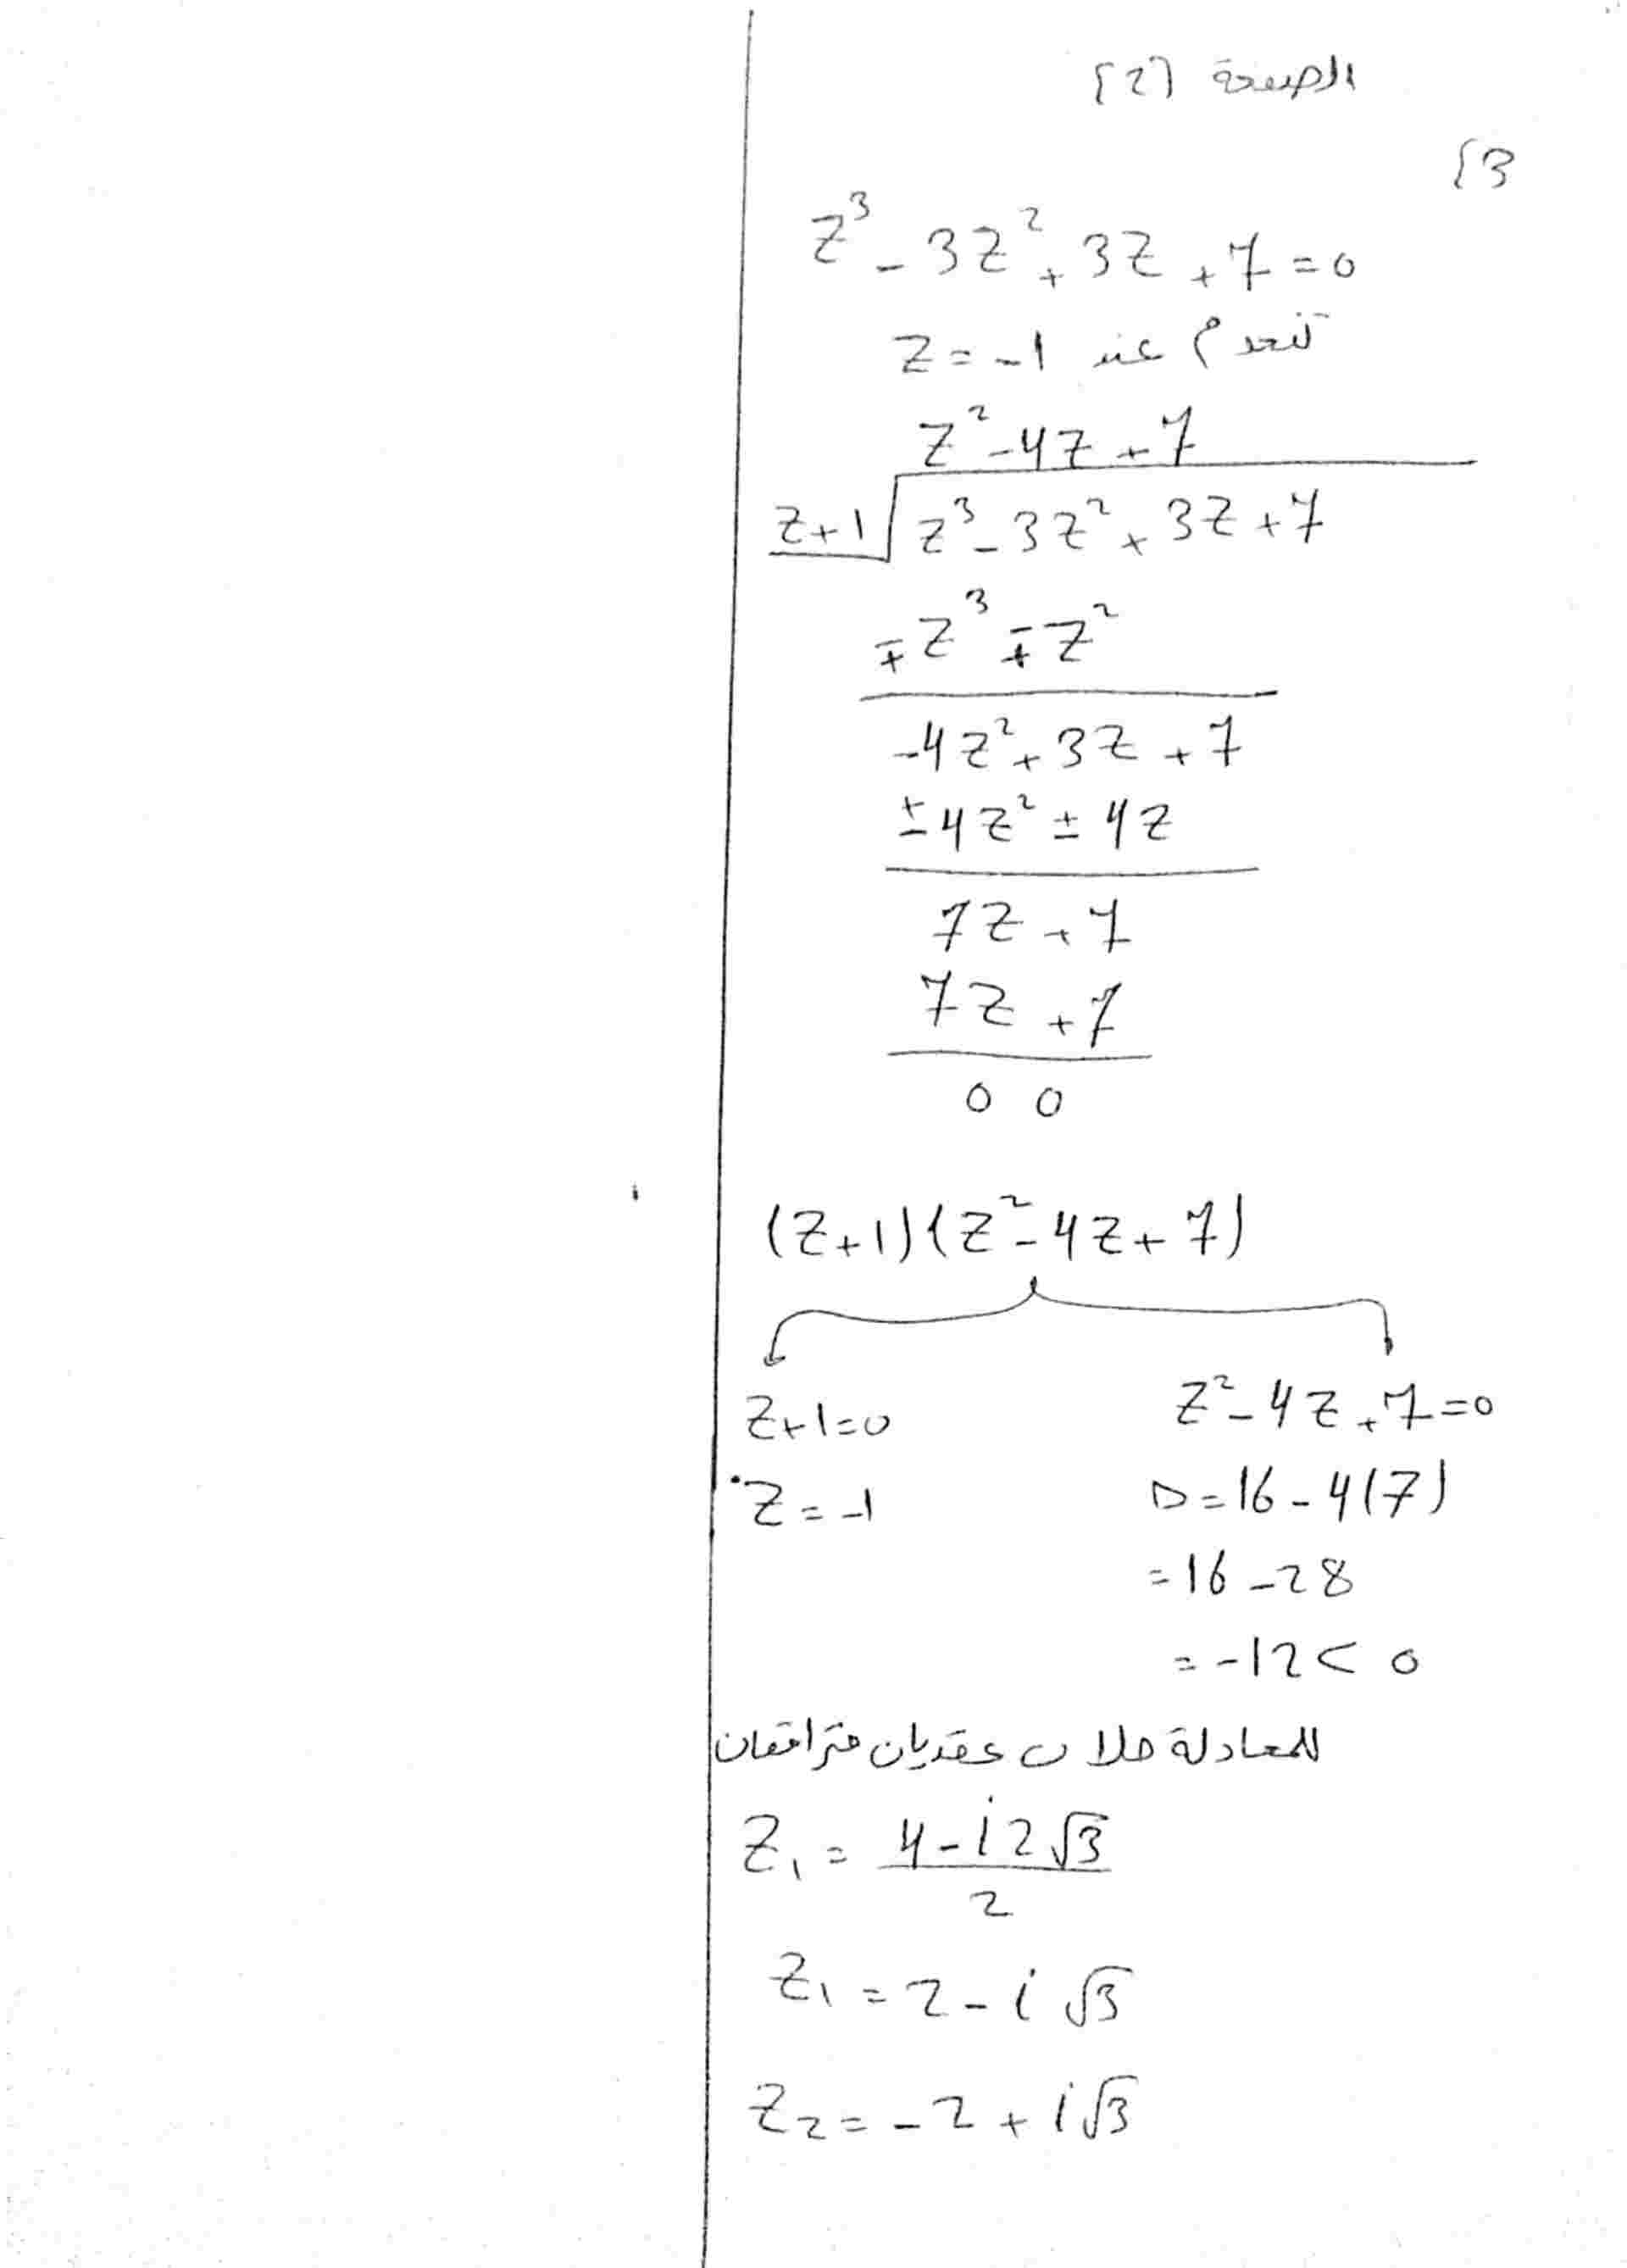 الصفحة {2}
{3
z³ - 3z² + 3z + 7 = 0
تنعدم عند z = -1
z² - 4z + 7
z+1 z³ - 3z² + 3z + 7
∓z³ ∓ z²
-4z² + 3z + 7
±4z² ± 4z
7z + 7
7z + 7
0 0
(z+1)(z² - 4z + 7)
z+1=0 z² - 4z + 7 = 0
z = -1 Δ = 16 - 4(7)
= 16 - 28
= -12 < 0
للمعادلة حلان عقديان مترافقان
z₁ = (4 - i2√3)/2
z₁ = 2 - i√3
z₂ = -2 + i√3